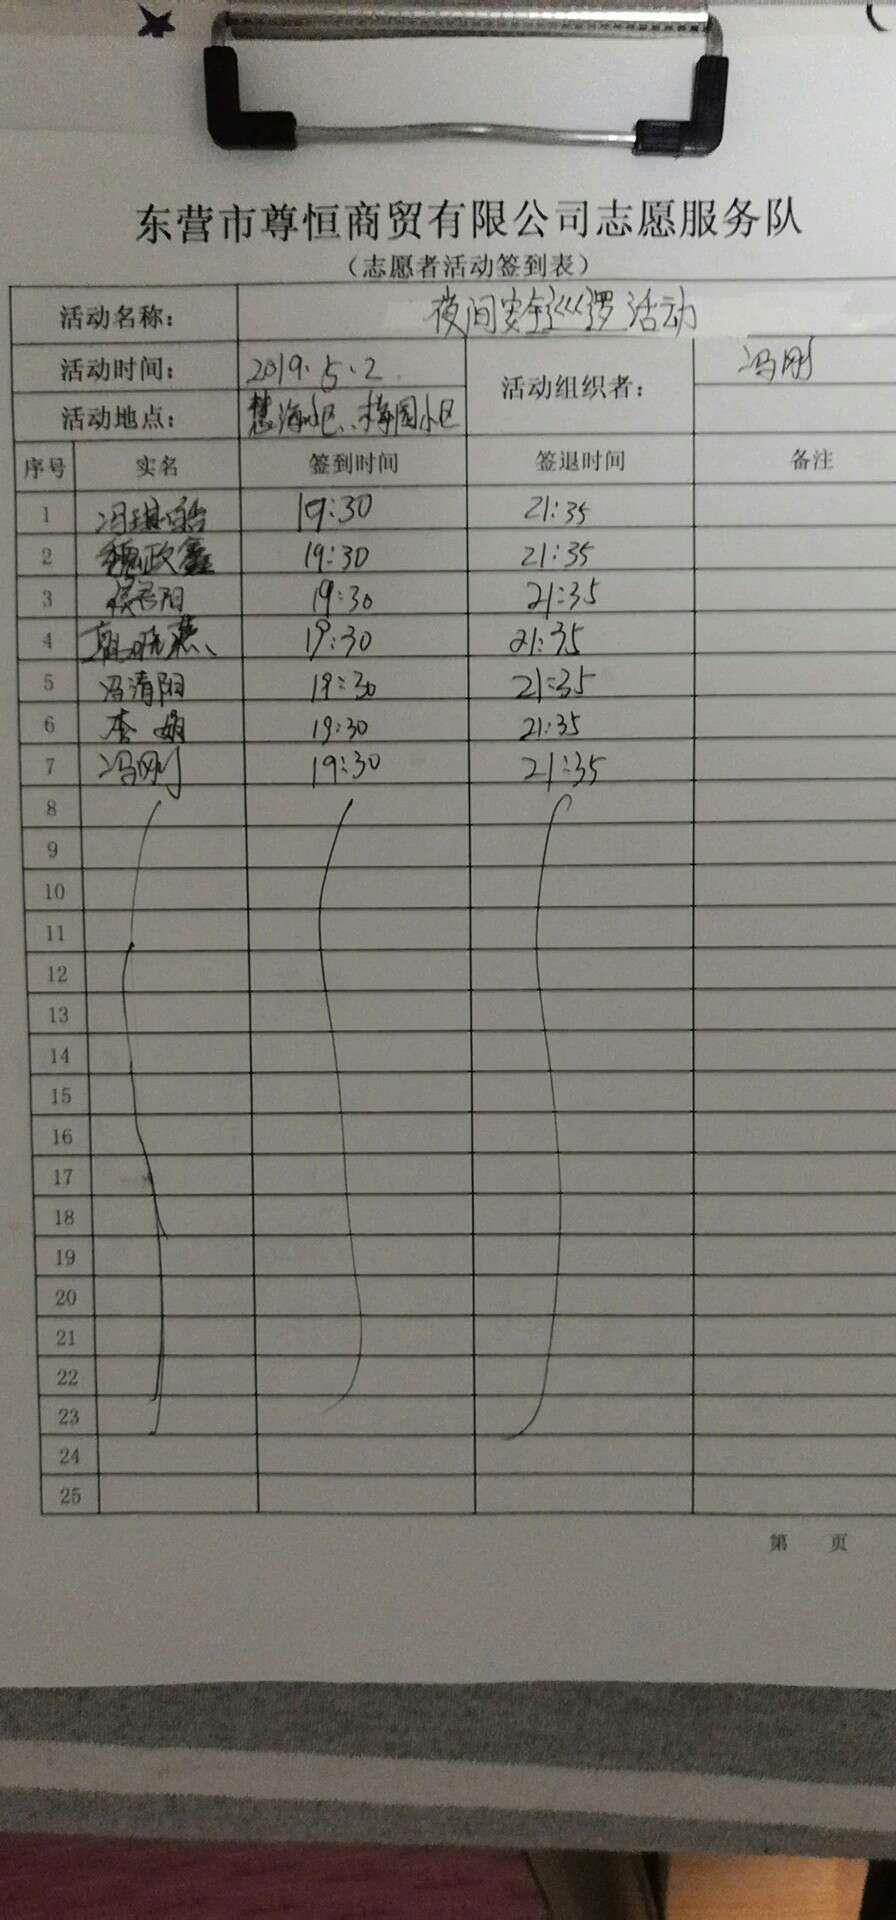 东营市尊恒商贸有限公司志愿服务队
（志愿者活动签到表）
活动名称： 夜间安全巡逻活动
活动时间： 2019.5.2. 活动组织者： 冯刚
活动地点： 慧海小区、梅园小区
序号 实名 签到时间 签退时间 备注
1 冯琪 19:30 21:35
2 魏政鑫 19:30 21:35
3 阳 19:30 21:35
4 19:30 21:35
5 冯清阳 19:30 21:35
6 李娟 19:30 21:35
7 冯刚 19:30 21:35
8
9
10
11
12
13
14
15
16
17
18
19
20
21
22
23
24
25
第 页